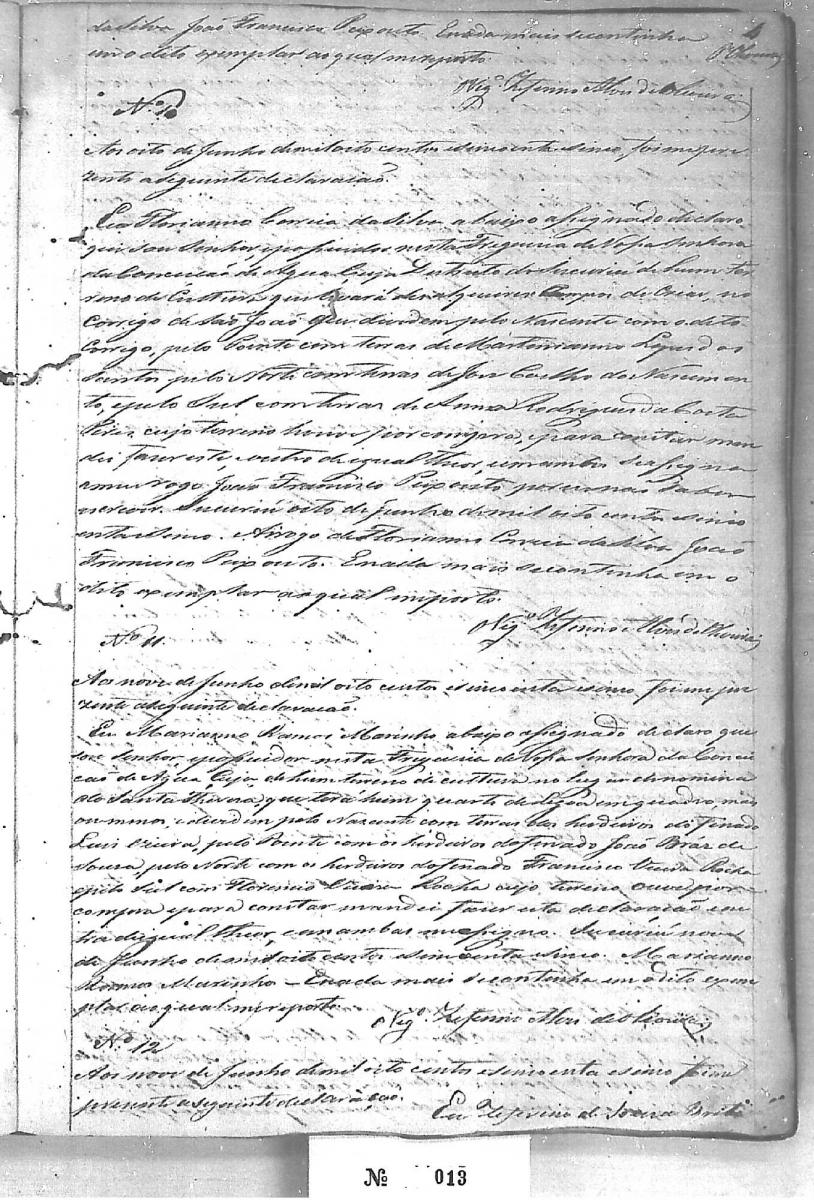 da Silva João Francisco Peixouto. Enada mais secontinha
em o dito exemplar ao qual me reporto.
4
O Vigº. Zeferino Alves de Oliveira
Nº. 10
Aos oito de Junho de mil oito centos esincoenta esinco, foi me pre
zente a seguinte declaração.
Eu Florianno Correia da Silva abaixo assignado declaro
que sou Senhor, epossuidor nesta Freguezia de Nossa Senhora
da Conceicaõ de Agua Cuja Destricto do Sucuriú de hum ter
reno de Cultura que levará alqueires de no
Corrigo de São João que devedem pelo Nascente com o dito
Corrigo, pelo Poente com terras de dos
Santos, pelo Norte com terras de Jose Coelho do Nascimen
to, epelo Sul com terras de Anna Rodrigues da Costa
cujo terreno houve por compra, epara constar man
dei fazer este, e outro de igual theor, em ambos se assigna
a meu rogo João Francisco Peixouto por eu não saber
escrever. Sucuriú oito de Junho de mil oito centos esinco
enta esinco. Arogo de Florianno Correia da Silva João
Francisco Peixouto. Enada mais secontinha em o
dito exemplar ao qual me reporto.
O Vigº. Zeferino Alves de Oliveira
Nº 11.
Aos nove de Junho de mil oito centos esincoenta esinco foi me pre
zente aseguinte declaração.
Eu Marianno Ramos Marinho abaixo assignado declaro que
sou Senhor, epossuidor nesta Freguezia de Nossa Senhora da Concei
caõ de Agua Cuja, de hum terreno de cultura no lugar denomina
do Santa Thereza, que terá hum quarto de Legoa em quadro, mais
ou menos, edevedem pelo Nascente com terras dos herdeiros do finado
Luis Vieira, pelo Poente com os herdeiros do finado João Braz de
Souza, pelo Norte com os herdeiros do finado Francisco Vieira Rocha
epelo Sul com Florencio Vieira Rocha cujo terreno ouve por
compra epara constar mandei fazer esta declaração eou
tra de igual theor, e em ambas me assigno. Sucuriú nove
de Junho de mil oito centos esincoenta esinco. Marianno
Ramos Marinho – Enada mais secontinha em o dito exem
plar ao qual me reporto.
O Vigº. Zeferino Alves de Oliveira
Nº. 12
Aos nove de Junho de mil oito centos esincoenta esinco foi me
prezente aseguinte declaração.
Eu Zeferino de Souza Brito
Nº 013